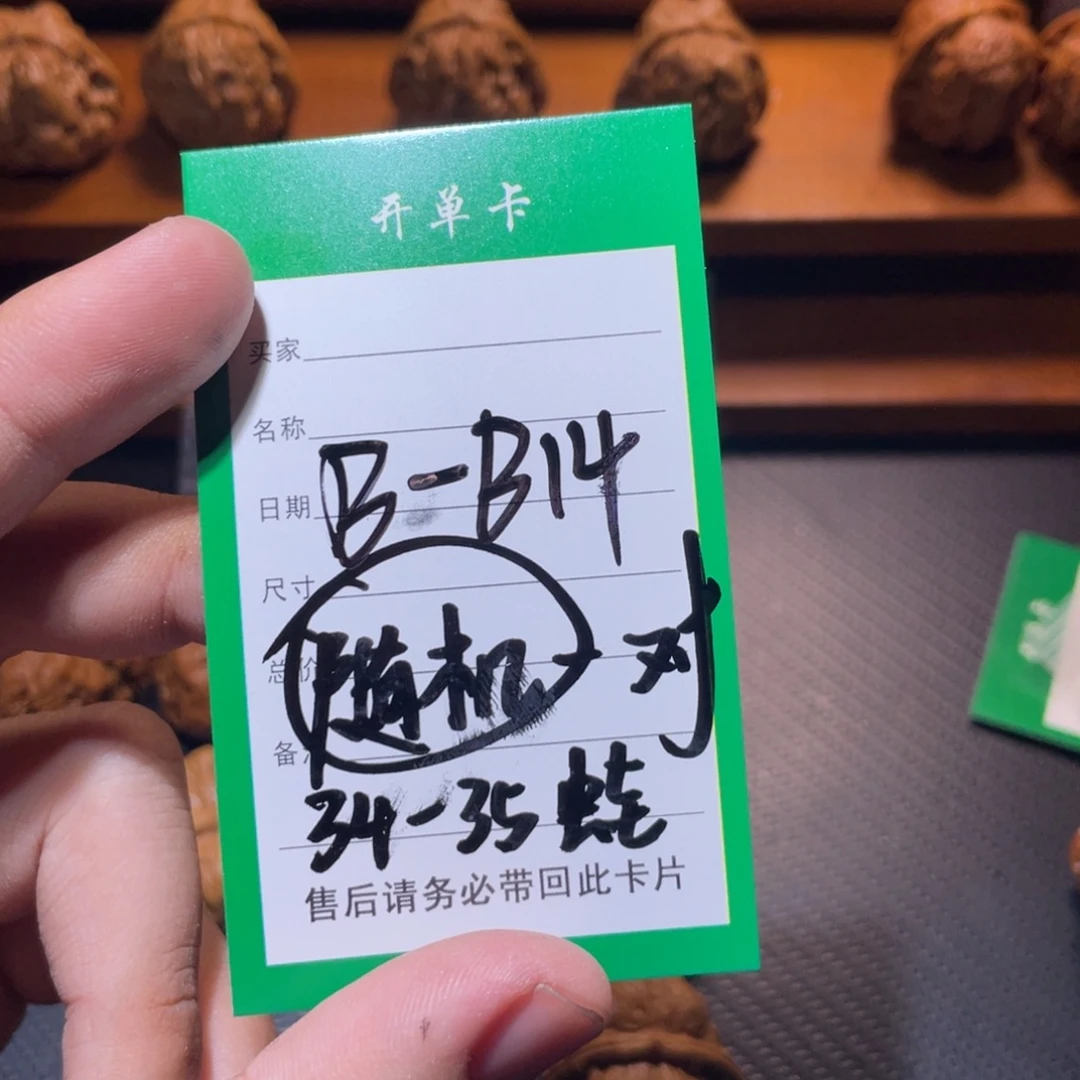 开单卡
买家
名称
B-B14
日期
尺寸
随机 对
总价
备
34-35
售后请务必带回此卡片